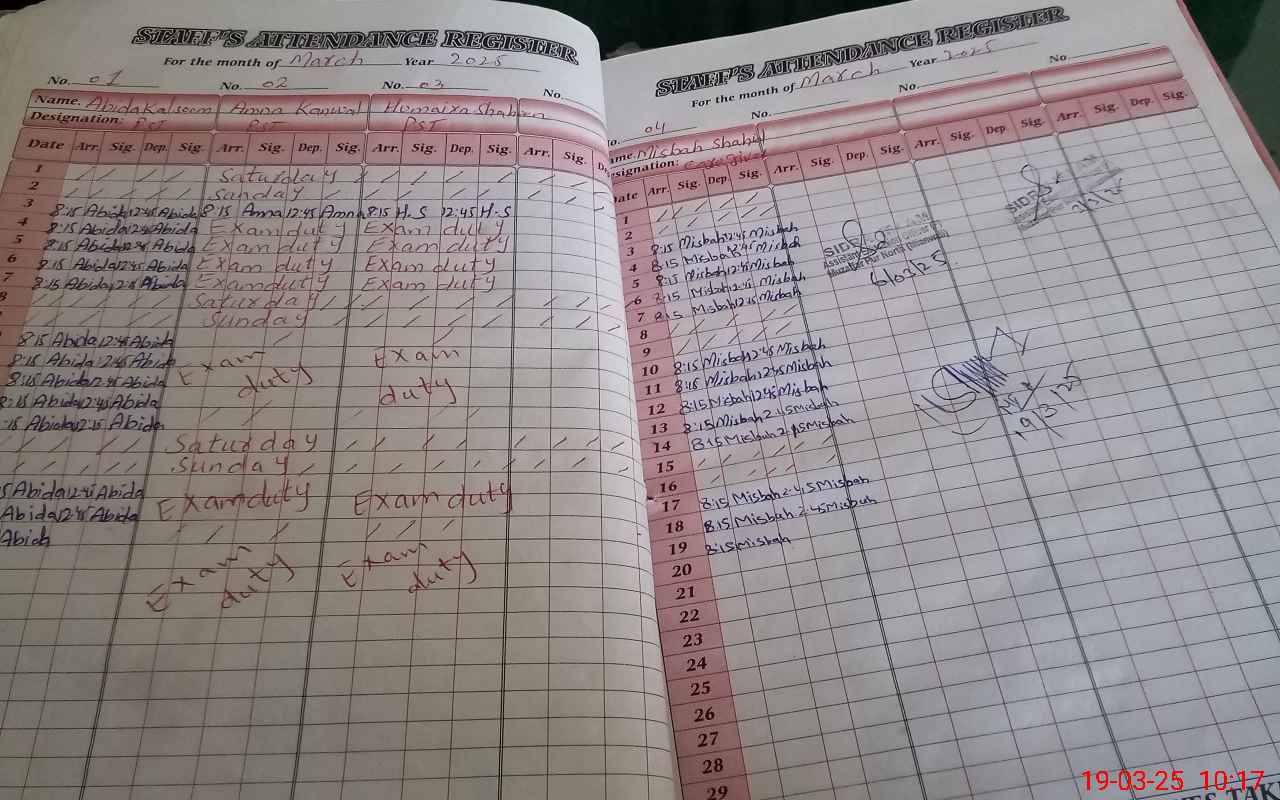 STAFF'S ATTENDANCE REGISTER
For the month of March Year 2025
No. 01 No. 02 No. 03 No.
Name. Abida Kalseem Amna Kanwal Humaira Shaheen
Designation: PST PST PST
Date Arr. Sig. Dep. Sig. Arr. Sig. Dep. Sig. Arr. Sig. Dep. Sig. Arr. Sig.
1 Saturday
2 Sunday
3 8:15 Abida 12:45 Abida 8:15 Amna 12:45 Amna 8:15 H.S 12:45 H.S
4 8:15 Abida 12:45 Abida Exam duty Exam duty
5 8:15 Abida 12:45 Abida Exam duty Exam duty
6 8:15 Abida 12:45 Abida Exam duty Exam duty
7 8:15 Abida 12:15 Abida Exam duty Exam duty
8 Saturday
Sunday
8:15 Abida 12:45 Abida
8:15 Abida 12:45 Abida Exam duty Exam duty
8:15 Abida 12:45 Abida
8:15 Abida 12:45 Abida
:15 Abida 12:15 Abida
Saturday
Sunday
5 Abida 12:45 Abida Exam duty Exam duty
Abida 12:45 Abida
Abida
Exam duty Exam duty
STAFF'S ATTENDANCE REGISTER
For the month of March Year 2025
04 No. No. No.
ame. Misbah Shahid
esignation: care giver
Date Arr. Sig. Dep. Sig. Arr. Sig. Dep. Sig. Arr. Sig. Dep. Sig. Arr. Sig. Dep. Sig.
1
2
3 8:15 Misbah 12:45 Misbah
4 8:15 Misbah 12:45 Misbah
5 8:15 Misbah 12:45 Misbah
6 8:15 Misbah 12:45 Misbah
7 8:15 Misbah 12:15 Misbah
8
9
10 8:15 Misbah 12:45 Misbah
11 8:15 Misbah 12:45 Misbah
12 8:15 Misbah 12:45 Misbah
13 8:15 Misbah 2:45 Misbah
14 8:15 Misbah 2:15 Misbah
15
16
17 8:15 Misbah 2:45 Misbah
18 8:15 Misbah 2:45 Misbah
19 8:15 Misbah
20
21
22
23
24
25
26
27
28
29
Assistant
Muzaffar Pur North (Mianwali)
6/02/25
19/3/25
19-03-25 10:17